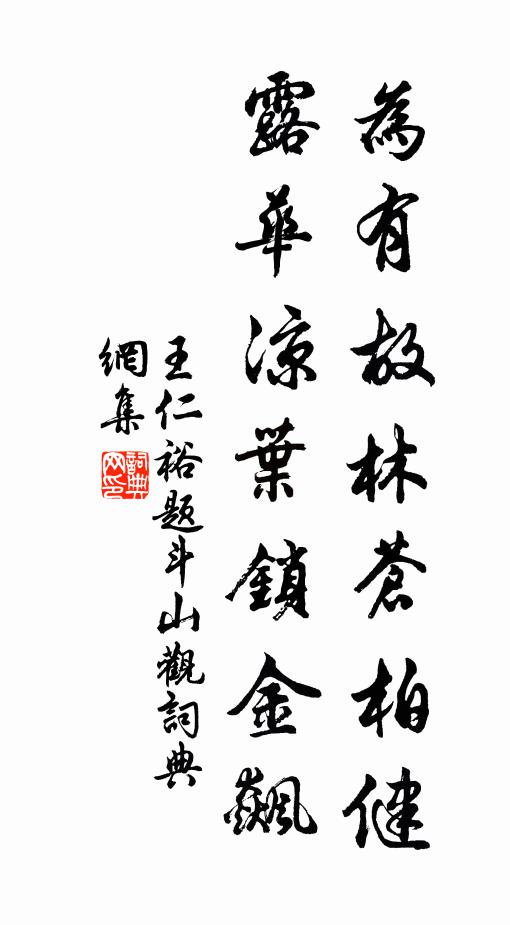 為有故林蒼柏健
露華涼葉鎖金飆
王仁裕題斗山觀詞典
網集
詞典網印